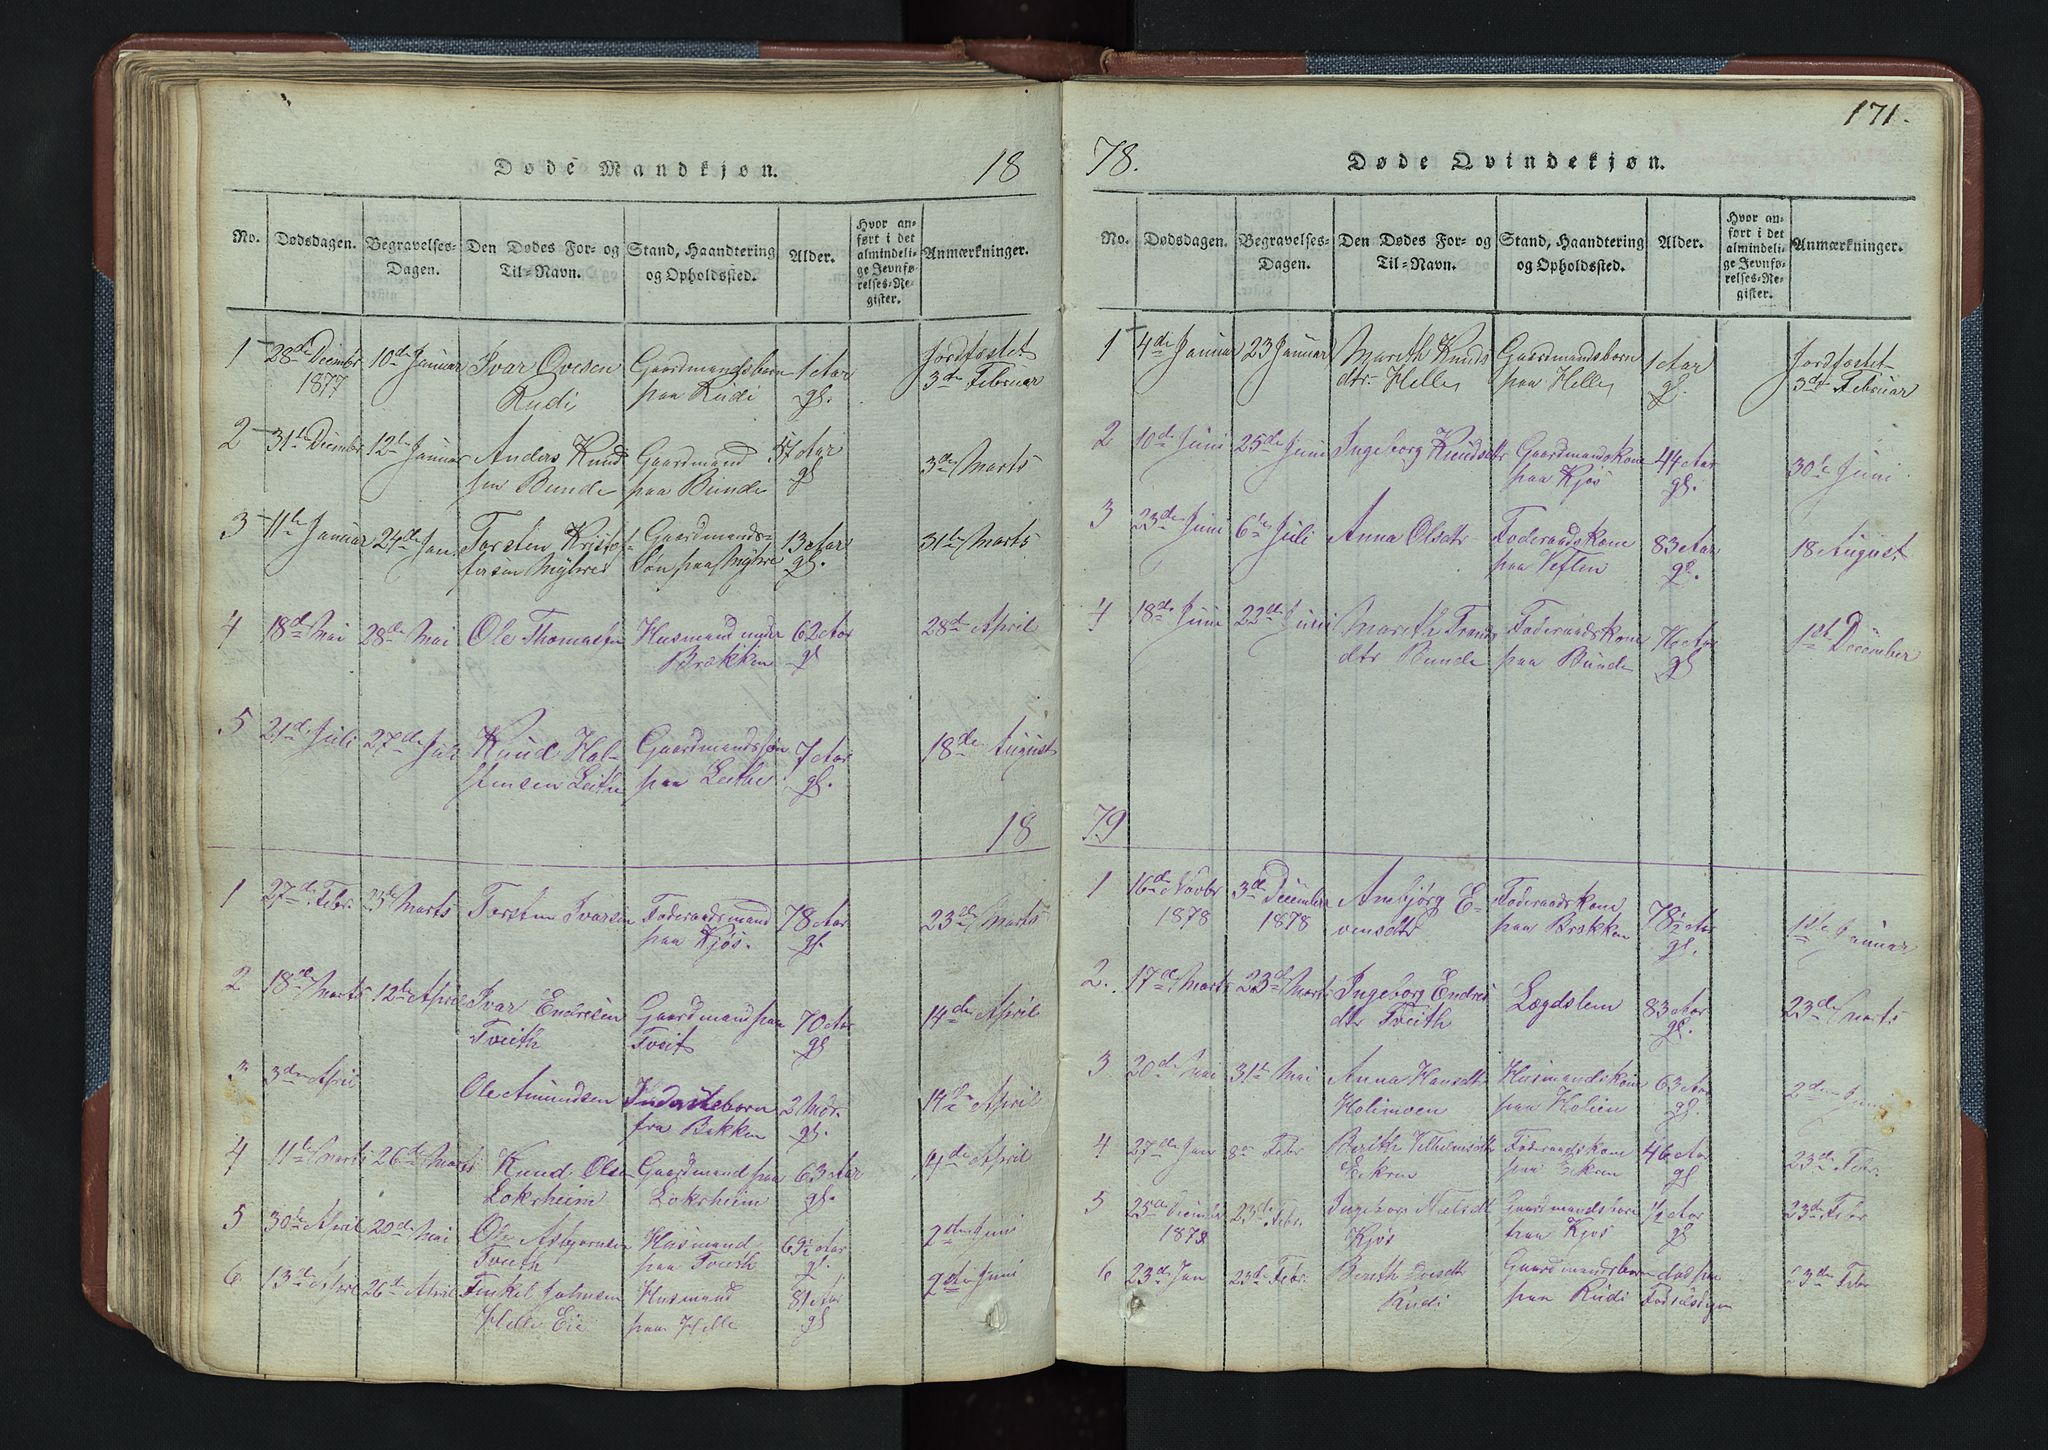 171.
Døde Mandkjøn. 18
No. Dødsdagen. Begravelses-Dagen. Den Dødes For- og Til-Navn. Stand, Haandtering og Opholdssted. Alder. Hvor anført i det almindelige Jevnførelses-Register. Anmærkninger.
1 28de Decembr 1877 10de Januar Ivar Ovesen Rudi Gaardmandsbarn paa Rudi 1 Aar gl. Jordfæstet 3de Februar
2 31te Decembr 12te Januar Anders Knudsen Bunde Gaardmand paa Bunde 57 Aar gl 3de Marts
3 11te Januar 24de Jan Torsten Kristofersen Myhre Gaardmands-Søn paa Myhre 13 Aar gl. 31te Marts
4 18de Mai 28de Mai Ole Thomassen Husmand under Brækken 62 Aar gl 28de April
5 21de Juli 27de Juli Knud Halstensen Leithe Gaardmandssøn paa Leithe 7 Aar gl. 18de August
18
1 27de Febr. 23de Marts Torsten Ivarsen Foderaadsmand paa Kjøs. 78 Aar gl. 23de Marts
2 18de Marts 12te April Ivar Endresen Tveith Gaardmand paa Tveit 70 Aar gl 14de April
3 3de April Ole Amundsen Inderstebarn fra Bakken 2 Mdr. gl. 14de April
4 11te Marts 26de Marts Knud Olsen Loksheim Gaardmand paa Loksheim 63 Aar gl. 14de April
5 30te April 20de Mai Ole Asbjørnsen Tveith Husmand paa Tveith 69½ Aar gl. 2den Juni
6 13de April 26de April Tinkel Johnsen Helle Eie Husmand paa Helle 81 Aar gl 2den Juni
78. Døde Qvindekjøn.
No. Dødsdagen. Begravelses-Dagen. Den Dødes For- og Til-Navn. Stand, Haandtering og Opholdssted. Alder. Hvor anført i det almindelige Jevnførelses-Register. Anmærkninger.
1 4de Januar 23 Januar Marith Knudsdtr. Helle Gaardmandsbarn paa Helle 1 Aar gl. Jordfæstet 3de Februar
2 10de Juni 25de Juni Ingeborg Knudsdtr Gaardmandskone paa Kjøs 44 Aar gl. 30te Juni
3 23de Juni 6te Juli Anna Olsdtr Foderaadskone paa Veflen 83 Aar gl. 18 August
4 18de Juni 22de Juni Marith Trondsdtr Bunde Foderaadskone paa Bunde 76 Aar gl 1ste December
79
1 16de Novbr 1878 3de December 1878 Ambjørg Evensdtr Foderaadskone paa Brækken 78½ Aar gl. 1ste Januar
2. 17de Marts 23de Marts Ingeborg Endresdtr Tveith Lægdslem 83 Aar gl. 23de Marts
3 20de Mai 31te Mai Anna Hansdtr Holimoen Husmandskone paa Holien 63 Aar gl. 2den Juni
4 27de Jan 8de Febr Berith Vilhelmsdtr Eekren Foderaadskone paa Ekren 46 Aar gl 23de Febr.
5 25de December 1878 23de Febr. Ingebor Nielsdt Kjøs Gaardmandsbarn paa Kjøs ½ Aar gl 23de Febr
6 23de Jan 23de Febr. Berith Ovesdtr Rudi Gaardmandsbarn paa Rudi død paa Fødselsdagen 23de Febr